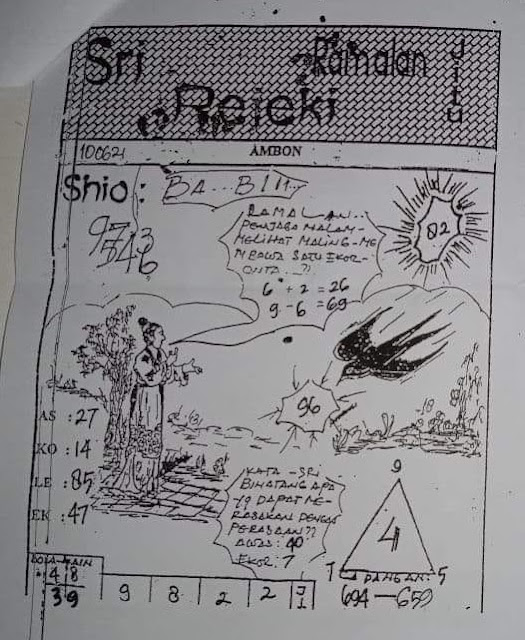 Sri Ramalan Jitu
Rejeki
100621 AMBON
Shio : BA...BIII...
RAMALAN..
PENJAGA MALAM-
MELIHAT MALING-ME
MBAWA SATU EKOR-
ONTA...?!
6 + 2 = 26
9 - 6 = 69
82
96
AS : 27
KO : 14
LE : 85
EK : 47
KATA -SRI..
BINATANG APA
YG DAPAT ME-
RASAKAN DENGAN
PERASAAN??
AWAS : 40
EKOR : 7
9
4
1 5
LAPANGAN:
694-659
BOLA-MAIN
4 8
39 9 8 2 2